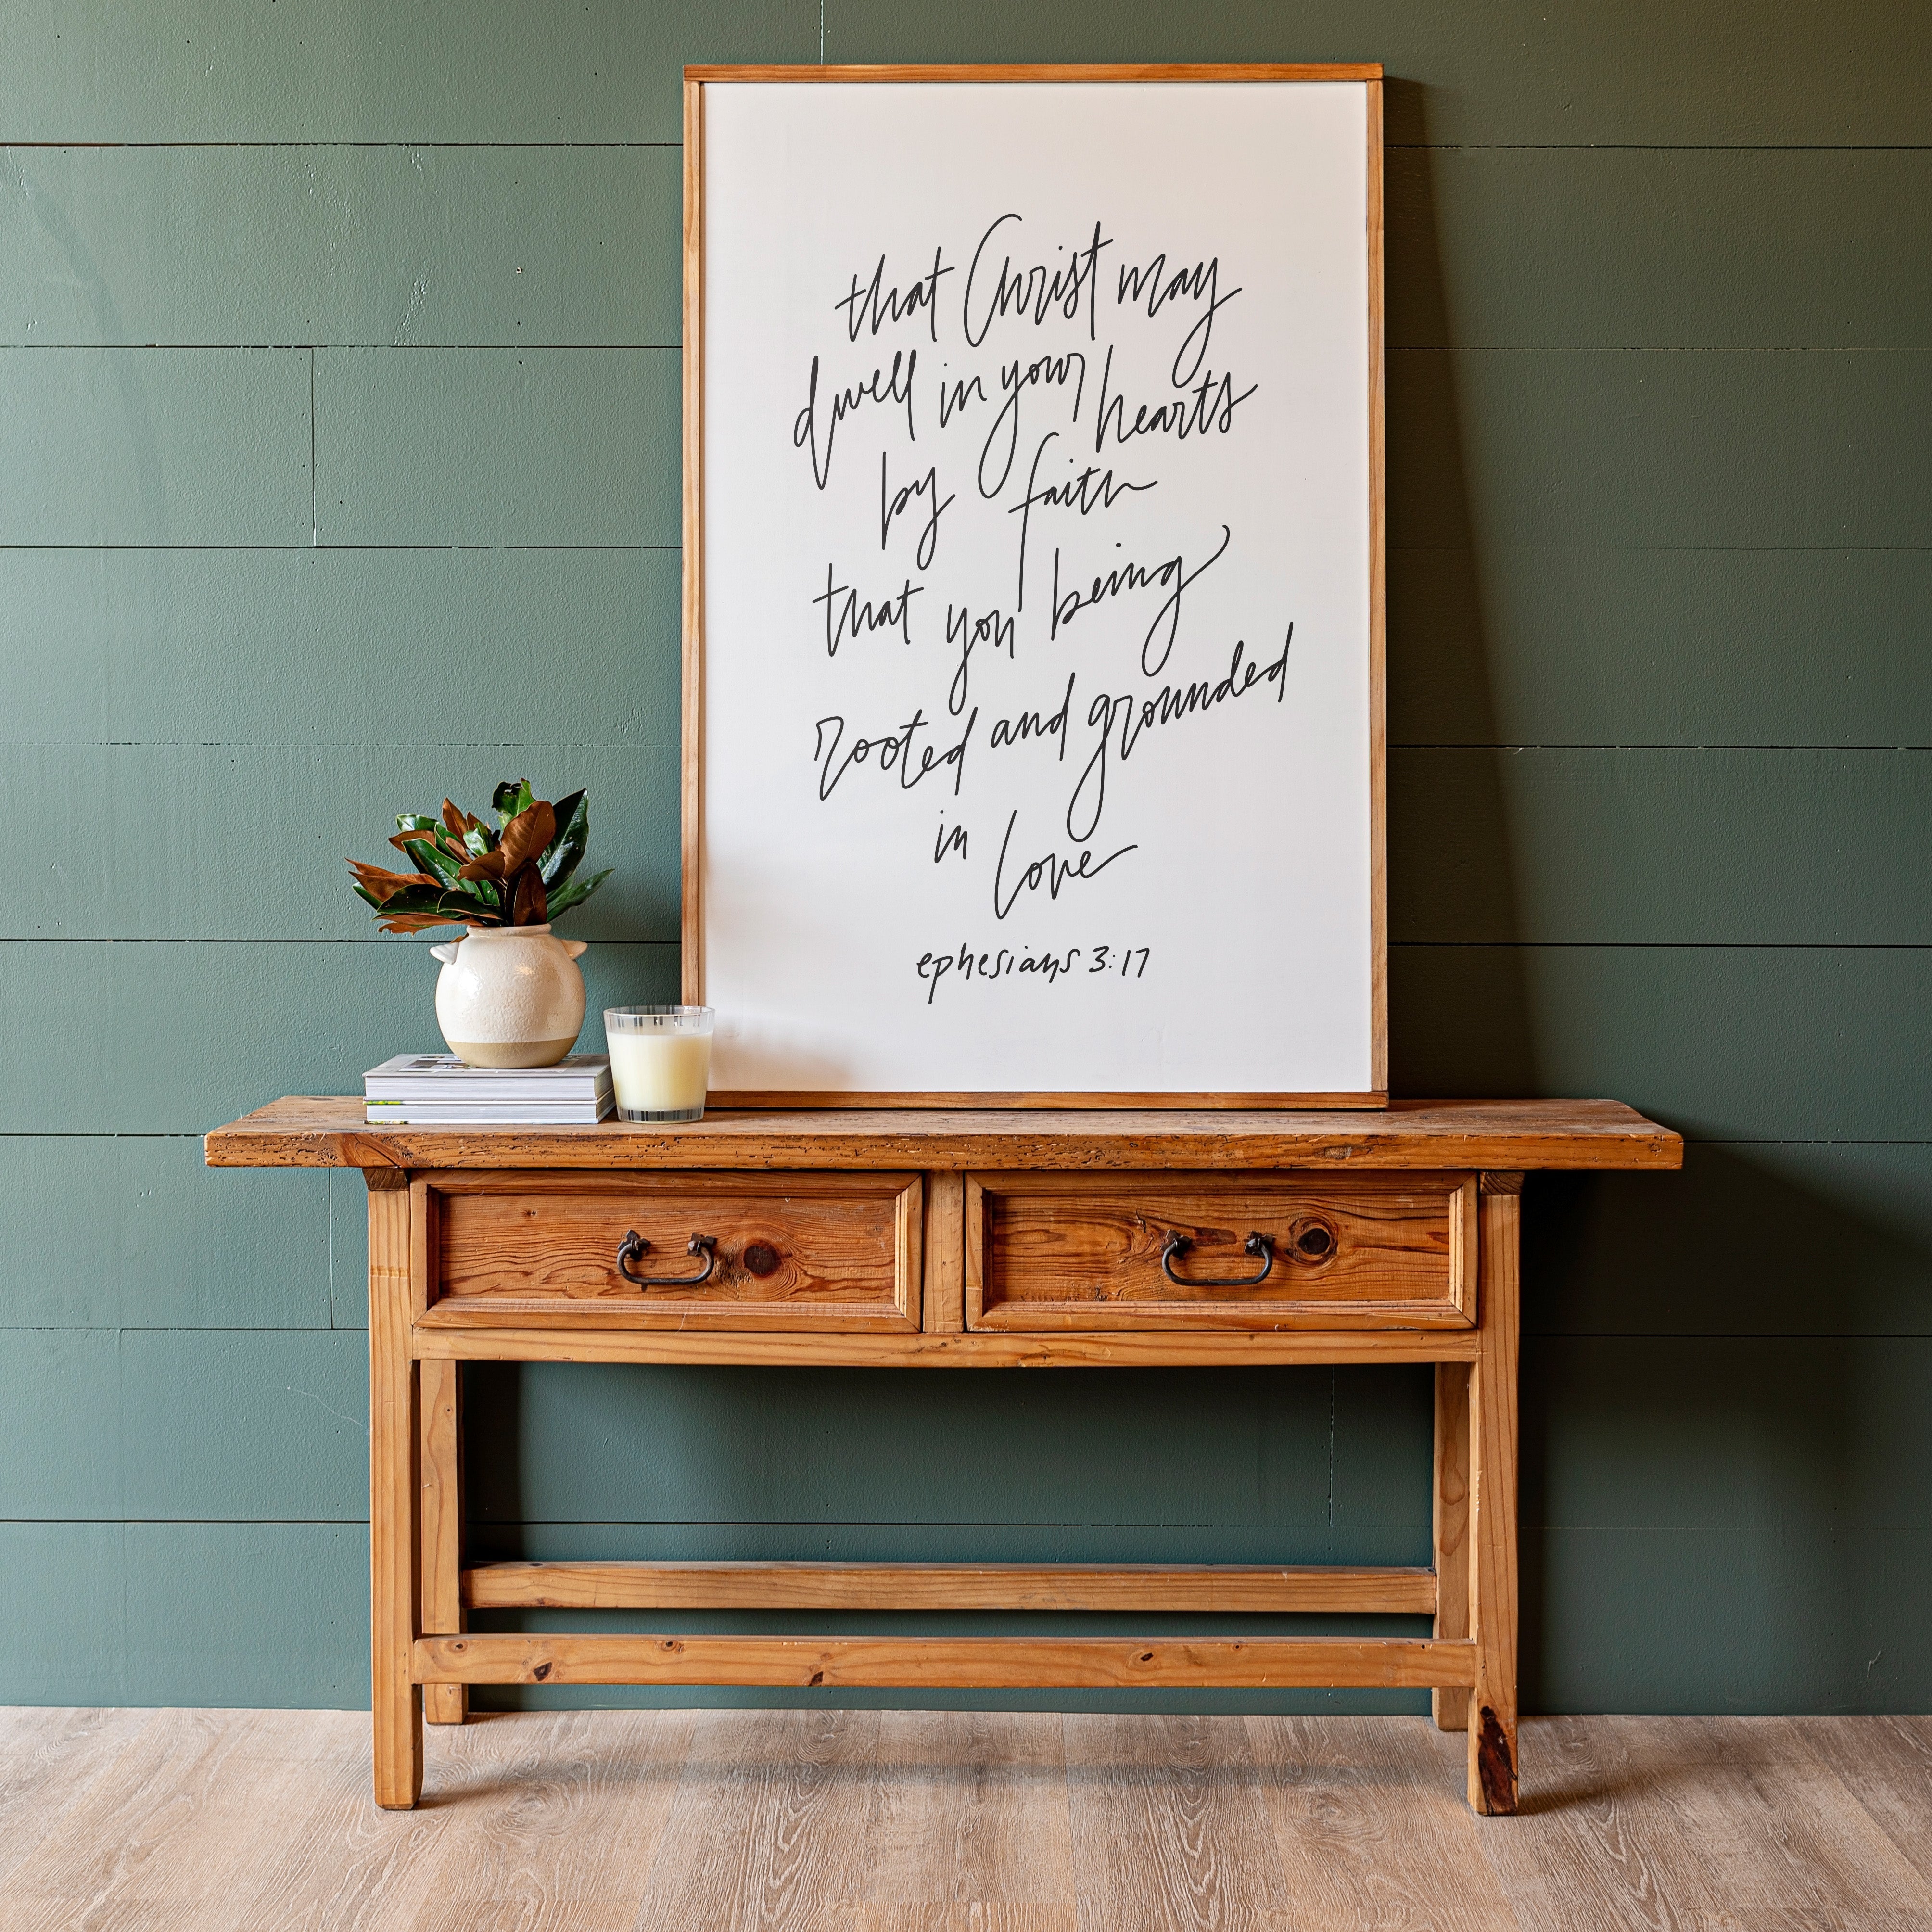 that Christ may
dwell in your hearts
by faith
that you being
rooted and grounded
in love
ephesians 3:17